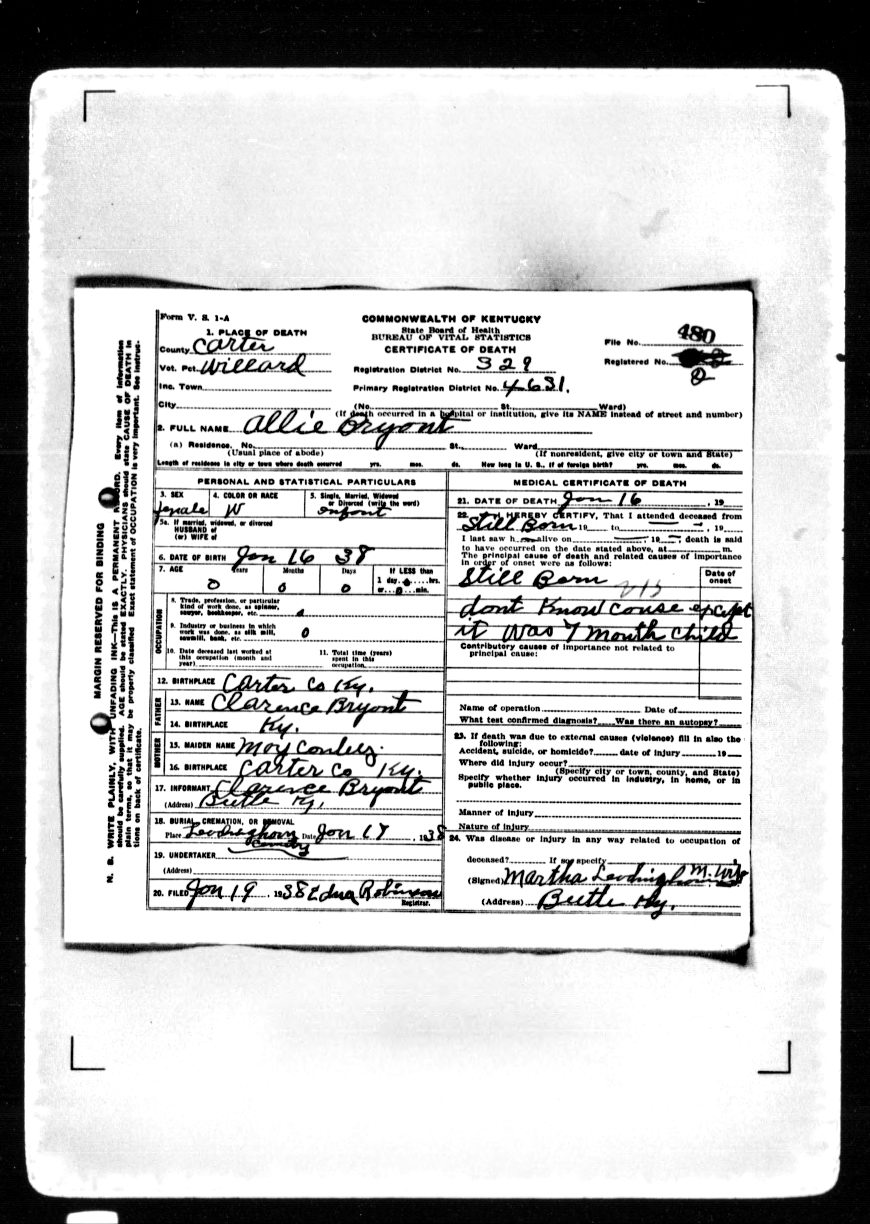 Form V. S. 1-A
COMMONWEALTH OF KENTUCKY
State Board of Health
BUREAU OF VITAL STATISTICS
CERTIFICATE OF DEATH
File No. 480
Registered No.
1. PLACE OF DEATH
County Carter
Vot. Pct. Willard
Inc. Town
City
Registration District No. 329
Primary Registration District No. 4631.
(No. St. Ward)
(If death occurred in a hospital or institution, give its NAME instead of street and number)
2. FULL NAME Allie Bryont
(a) Residence. No. St., Ward
(Usual place of abode) (If nonresident, give city or town and State)
Length of residence in city or town where death occurred yrs. mos. ds. How long in U. S., if of foreign birth? yrs. mos. ds.
PERSONAL AND STATISTICAL PARTICULARS
3. SEX 4. COLOR OR RACE 5. Single, Married, Widowed
or Divorced (write the word)
female W infont
5a. If married, widowed, or divorced
HUSBAND of
(or) WIFE of
6. DATE OF BIRTH Jan 16 38
7. AGE Years Months Days If LESS than
1 day, hrs.
or min.
0 0 0
OCCUPATION
8. Trade, profession, or particular
kind of work done, as spinner,
sawyer, bookkeeper, etc.
9. Industry or business in which
work was done, as silk mill,
sawmill, bank, etc. 0
10. Date deceased last worked at
this occupation (month and
year)
11. Total time (years)
spent in this
occupation.
12. BIRTHPLACE Carter Co Ky.
FATHER
13. NAME Clarence Bryont
14. BIRTHPLACE Ky.
MOTHER
15. MAIDEN NAME
16. BIRTHPLACE Carter Co Ky.
17. INFORMANT Clarence Bryont
(Address) Ky.
18. BURIAL, CREMATION, OR REMOVAL
Place Date Jon 17, 1938
19. UNDERTAKER
(Address)
20. FILED Jon 19, 1938 Edna Robinson
Registrar.
MEDICAL CERTIFICATE OF DEATH
21. DATE OF DEATH Jon 16, 19
22. I HEREBY CERTIFY, That I attended deceased from
Still Born 19 to , 19
I last saw h alive on , 19 , death is said
to have occurred on the date stated above, at m.
The principal cause of death and related causes of importance
in order of onset were as follows:
Date of
onset
Still Born
dont Know couse except
it was 7 month child
Contributory causes of importance not related to
principal cause:
Name of operation Date of
What test confirmed diagnosis? Was there an autopsy?
23. If death was due to external causes (violence) fill in also the
following:
Accident, suicide, or homicide? date of injury 19
Where did injury occur?
(Specify city or town, county, and State)
Specify whether injury occurred in industry, in home, or in
public place.
Manner of injury
Nature of injury
24. Was disease or injury in any way related to occupation of
deceased? If so, specify
(Signed) Martha
(Address) Ky.
MARGIN RESERVED FOR BINDING
N. B. WRITE PLAINLY, WITH UNFADING INK—This is a PERMANENT RECORD. Every item of information
should be carefully supplied. AGE should be stated EXACTLY. PHYSICIANS should state CAUSE OF DEATH in
plain terms, so that it may be properly classified. Exact statement of OCCUPATION is very important. See instruc-
tions on back of certificate.